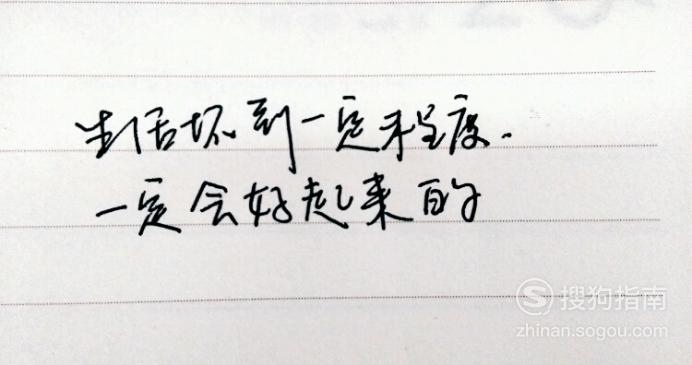 生活坏到一定程度.
一定会好起来的
S 搜狗指南
zhinan.sogou.com